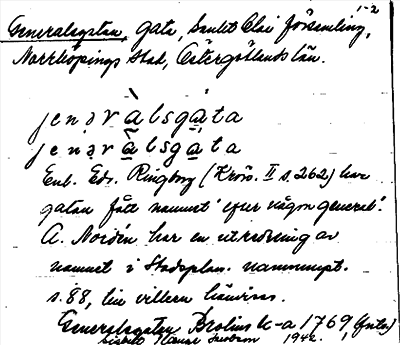 1-2
Generalsgatan, gata, Sankt Olai församling,
Norrköpings stad, Östergötlands län.
jenəràlsgáta
jenəràlsgáta
Enl. Edv. Ringborg (Krön. II s. 262) har
gatan fått namnet "efter någon general".
A. Nordén har en utredning av
namnet i Stadsplan. namnuppt.
s. 88, till vilken hänvisas.
Generalsgatan Brolins k-a 1769,
1942.